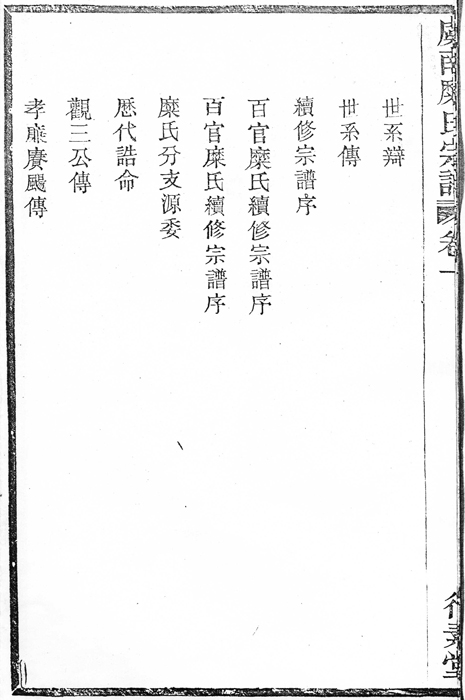 虞南糜氏宗譜 卷一
世系辯
世系傳
續修宗譜序
百官糜氏續修宗譜序
百官糜氏續修宗譜序
糜氏分支源委
歷代誥命
觀三公傳
孝廉賡颺傳